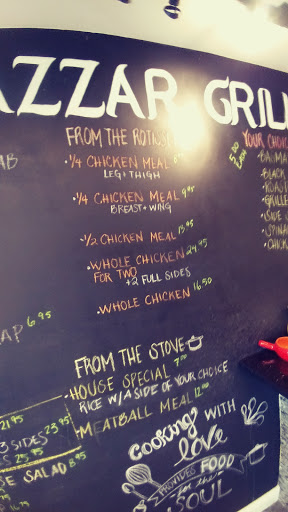 AZZAR GRILL
FROM THE ROTISS
YOUR CHOIC
AB
1/4 CHICKEN MEAL
LEG + THIGH
1/4 CHICKEN MEAL 9.95
BREAST + WING
1/2 CHICKEN MEAL 13.95
WHOLE CHICKEN 24.95
FOR TWO + 2 FULL SIDES
WHOLE CHICKEN 16.50
5.00
BASMA
BLACK
ROAST
GRILLE
SIDE
SPINA
CHICK
AP 6.95
FROM THE STOVE
HOUSE SPECIAL 7.00
RICE W/ A SIDE OF YOUR CHOICE
MEATBALL MEAL 12.00
21.95
3 SIDES 23.95
ES 25.95
SE SALAD 8.95
9.95
COOKING WITH
LOVE
PROVIDES FOOD
FOR THE
SOUL